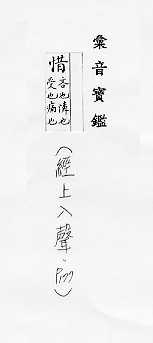 彙音寶鑑
惜
吝也憐也
愛也痛也
（經上入聲